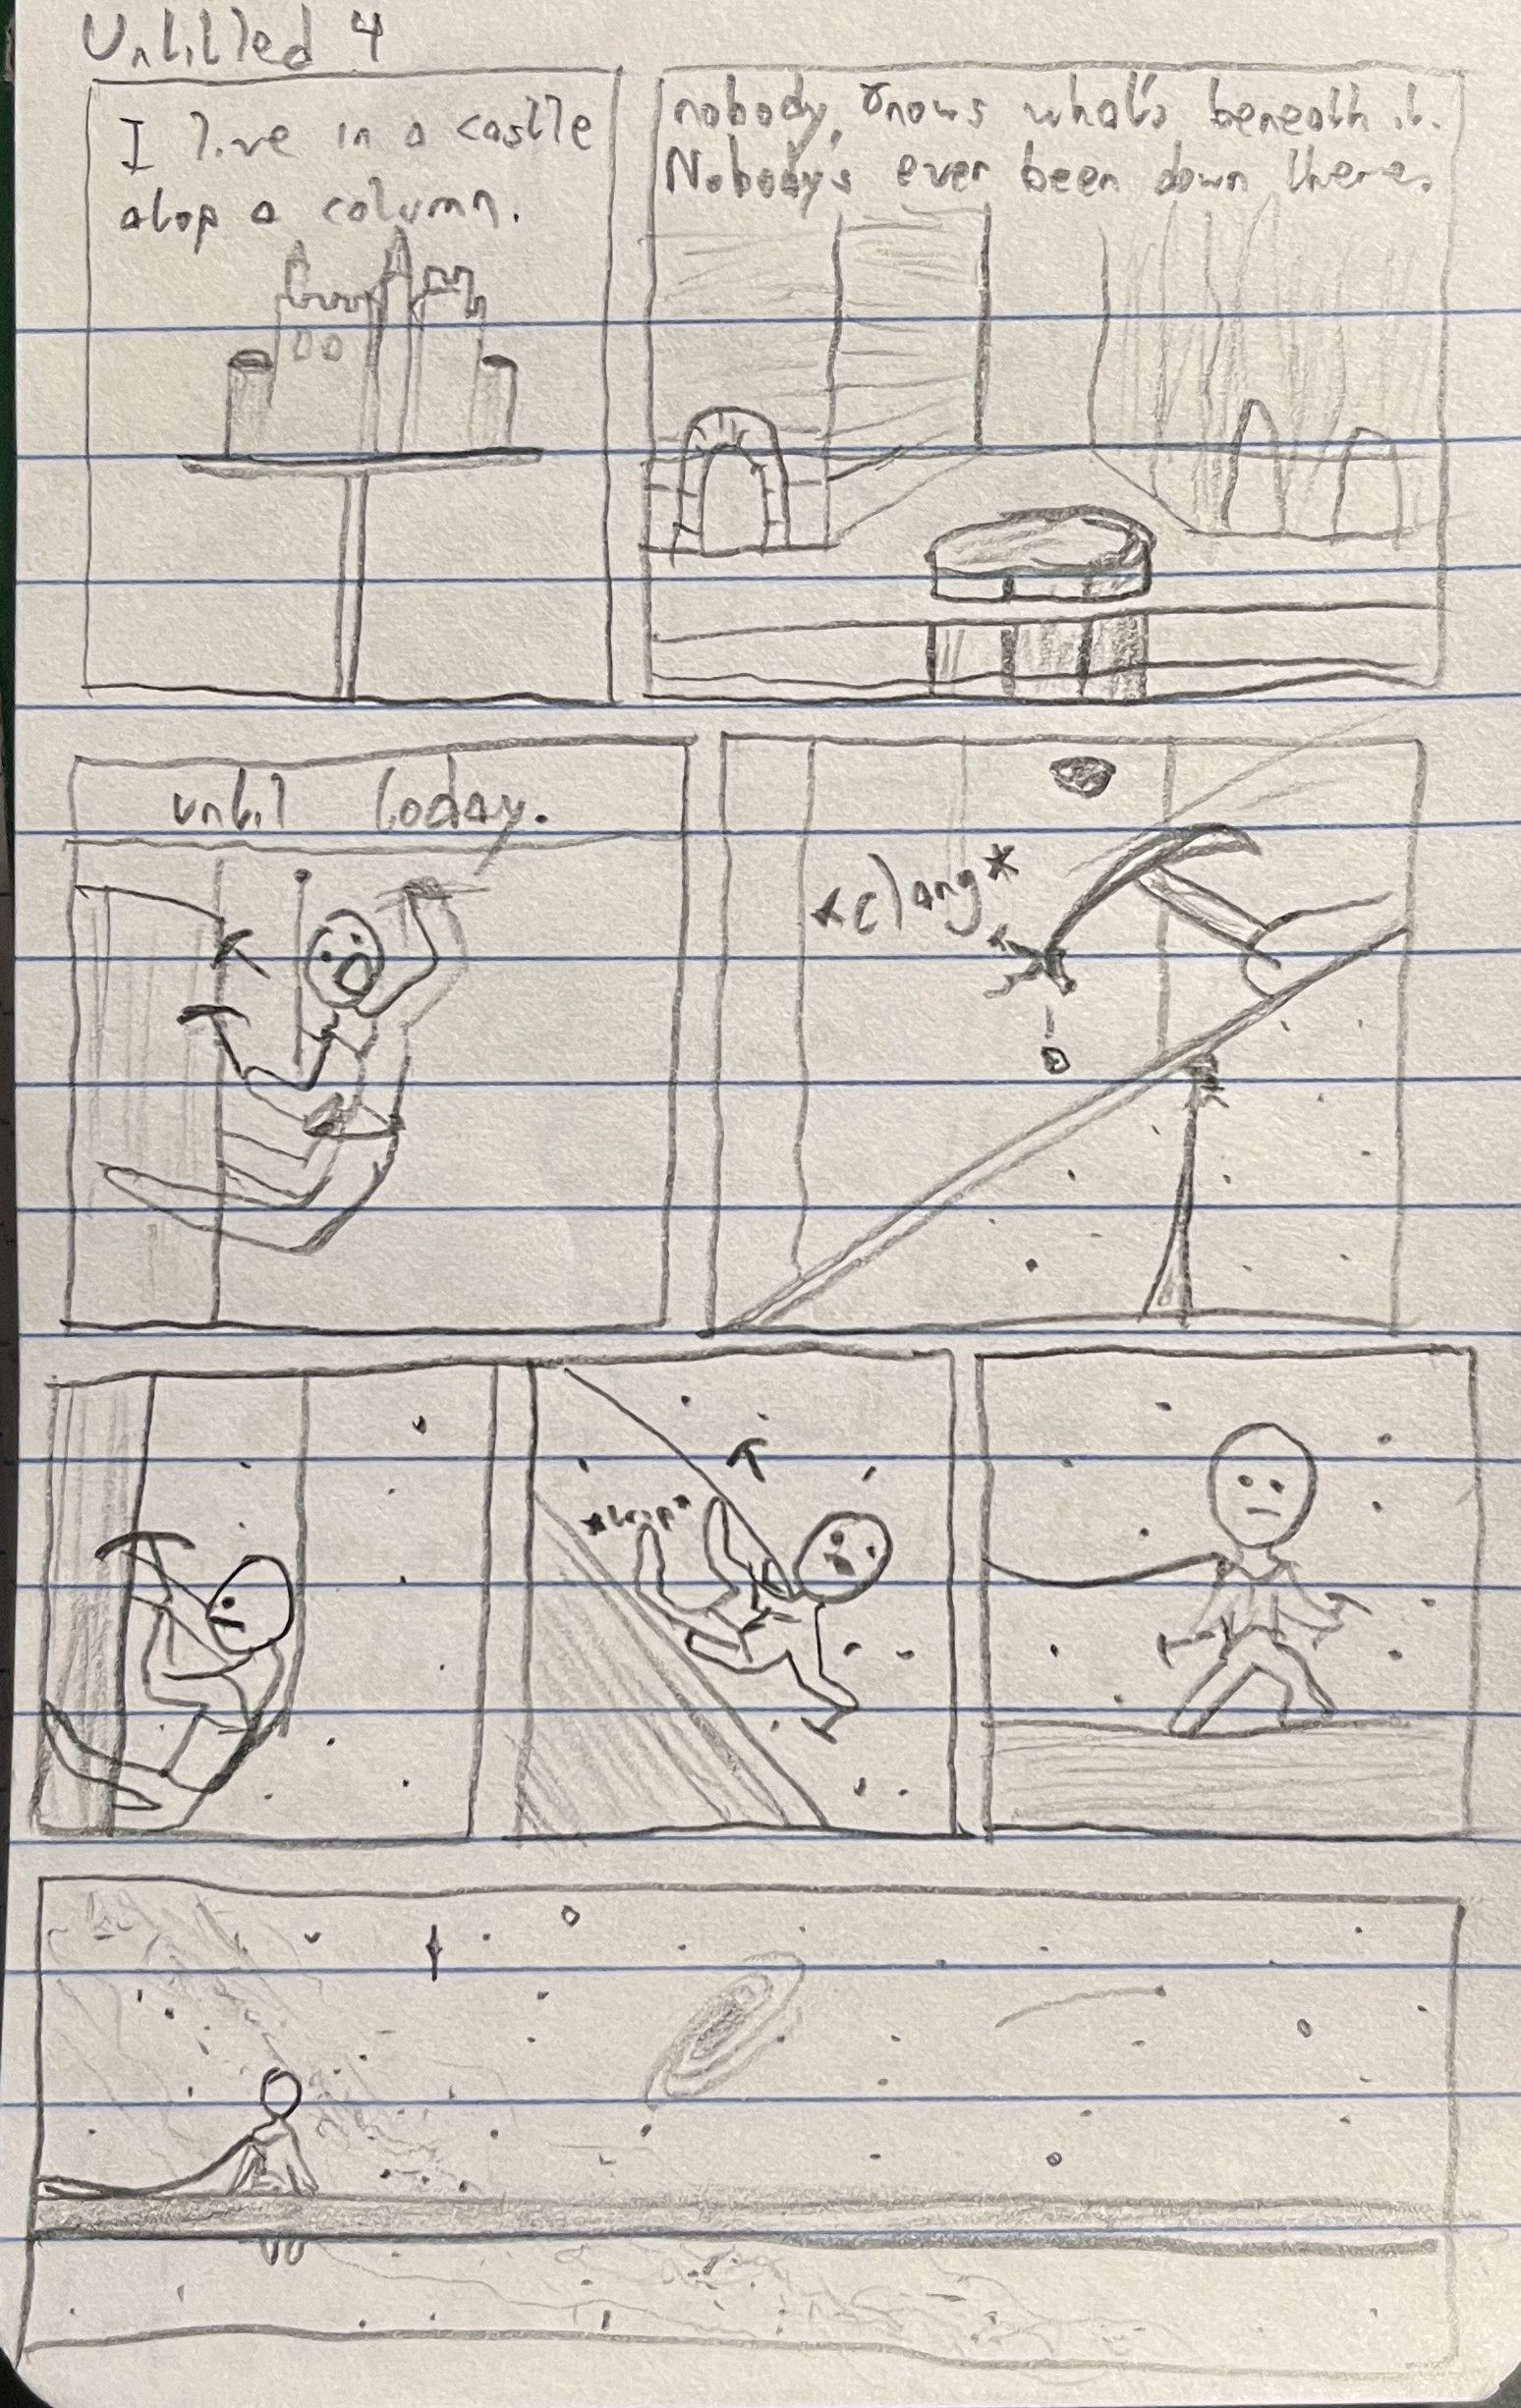 Untitled 4
I live in a castle
atop a column.
nobody knows what's beneath it.
Nobody's ever been down there,
until today.
*clang*